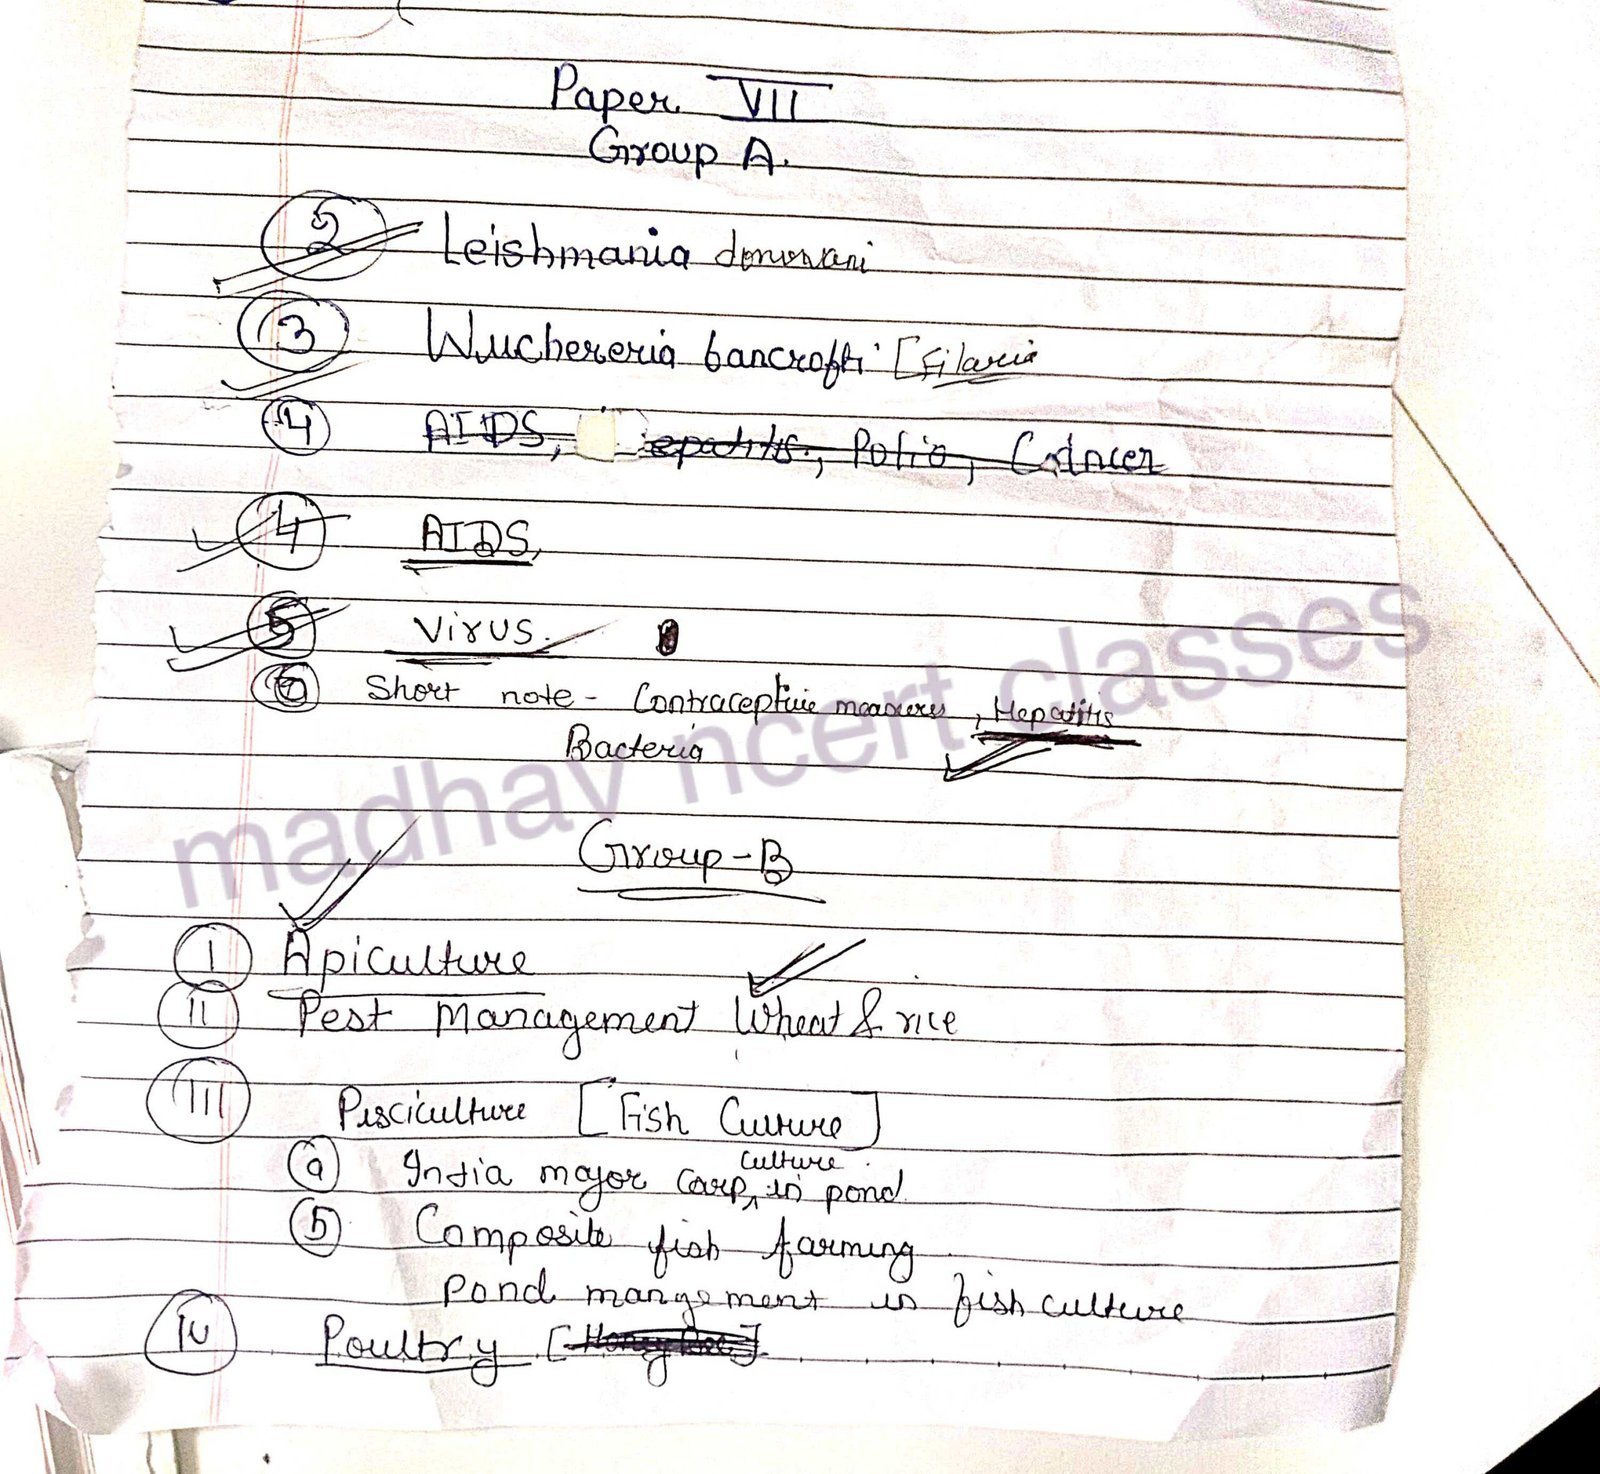 Paper VII
Group A.
2 Leishmania donovani
3 Wuchereria bancrofti [filaria
4 AIDS, epatitis, Polio, Cancer
4 AIDS,
5 Virus.
6 Short note - Contraceptive measures, Hepatitis
Bacteria
madhav ncert classes
Group-B
I Apiculture
II Pest Management Wheat & rice
III Pisciculture [Fish Culture]
a India major carp culture in pond
b Composite fish farming
pond mangement in fish culture
IV Poultry [Honey Bee]